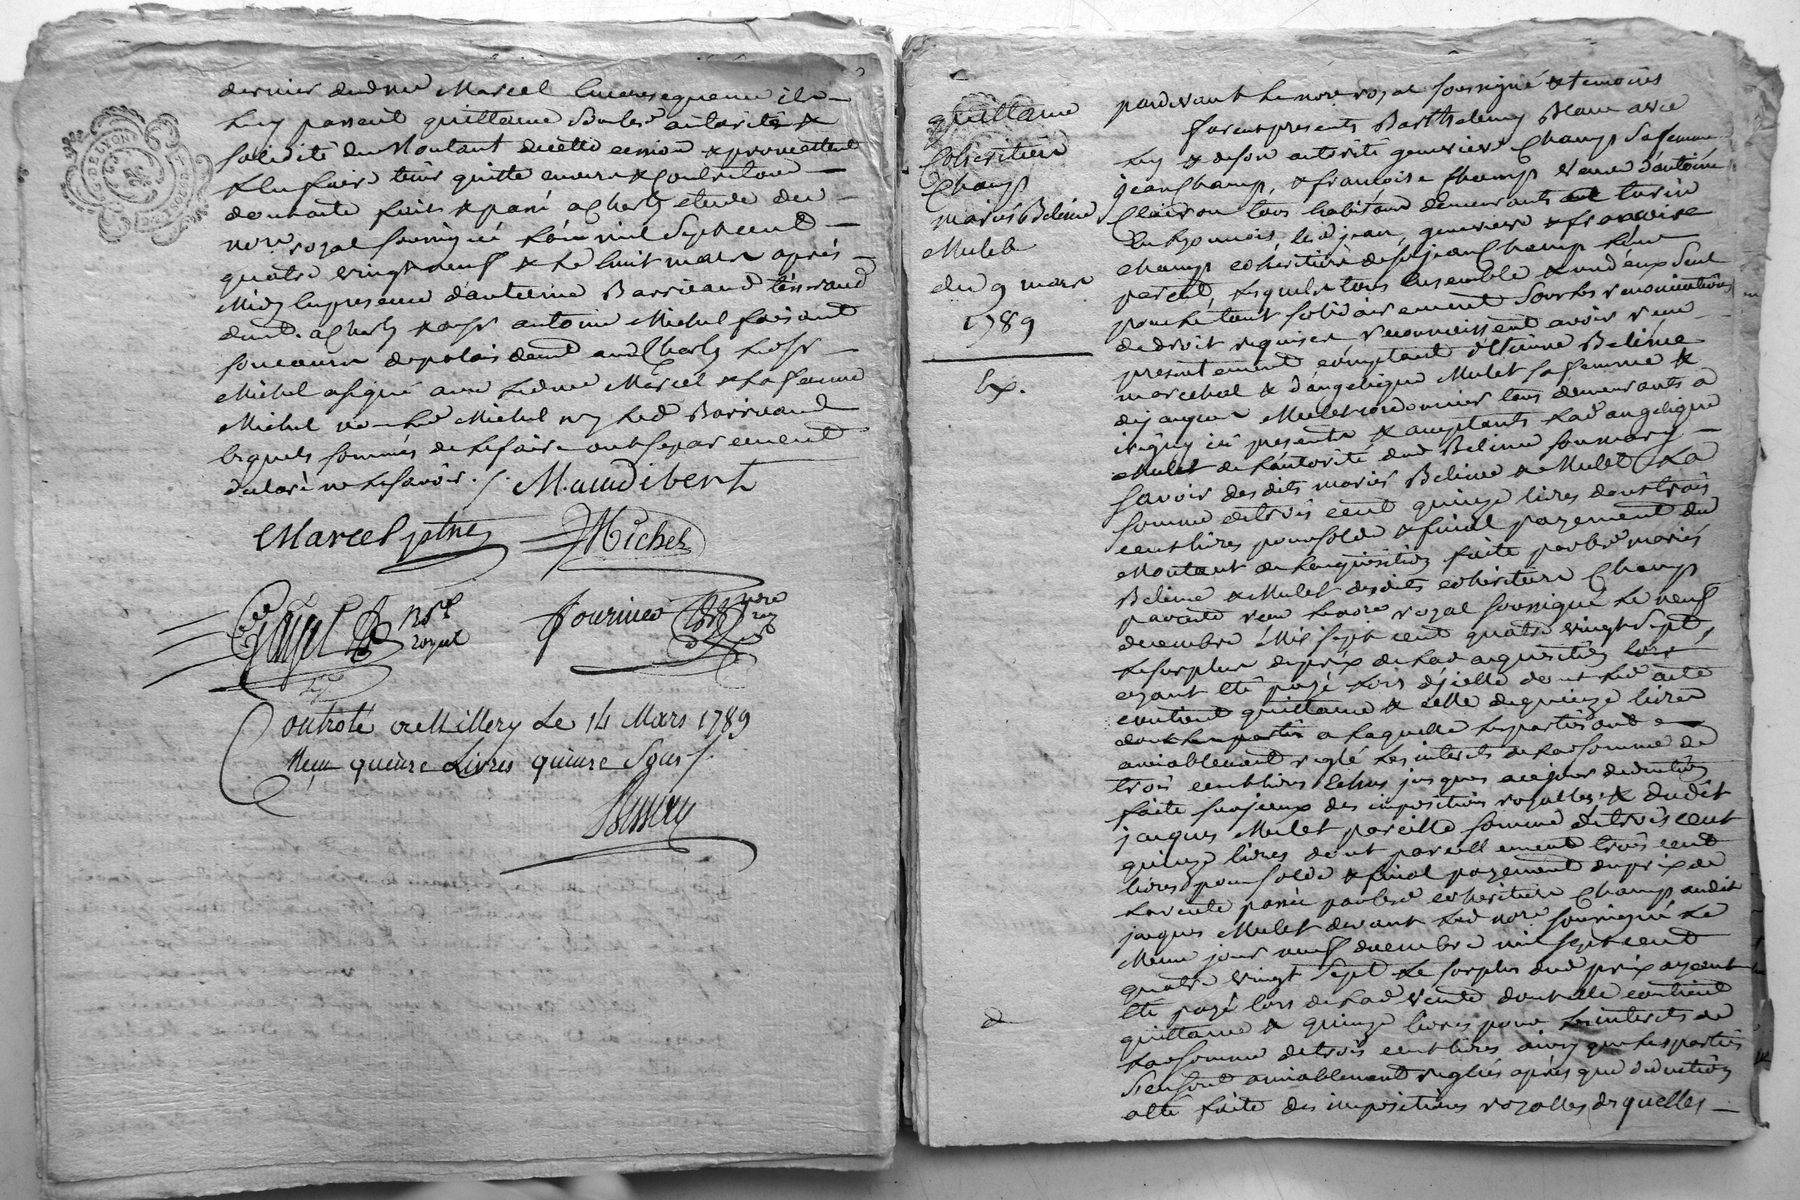 dernier dud. me Marcel en consequence ils
luy passent quittance sous les autorités &
solidité du montant de cette cession & promettent
l'en faire tenir quitte envers & contre tous
dont acte fait & passé a Charly etude du
nore royal soussigné l'an mil sept cent
quatre vingt neuf & le huit mars après
midy en presence d'antoine Barricand tisserand
demt. a Charly & de sr antoine Michel faisant
son cours de palais demt aud. Charly led. sr
Michel a signé avec led. me Marcel & la femme
Michel non le Michel ny led. Barricand
lesquels sommés de le faire ont separement
declaré ne le savoir ./.
M. audibert
Marcel ptre
Michel
nore royal
fourineo nore roy
Controlé a Millery le 14 Mars 1789
Reçu quinze livres quinze sous /.
DE LYON
quittance
Cohéritiers
Champ
mariés Beline
Mulet
du 9 mars
1789
Ex.
pardevant le nore royal soussigné & temoins
furent presents Barthelemy Blanc avec
luy & de son autorité genevieve Champ sa femme
jean Champ, & francoise Champ veuve d'antoine
Clairon tous habitans demeurants a
en Lyonnois, lesd. jean, genevieve & francoise
champ cohéritiers de st jean Champ leur
parent, lesquels tous ensemble & un d'eux seul
pour le tout solidairement sous les renonciations
de droit requises, reconnoissent avoir reçu
presentement comptant d'Etienne Beline
marechal & d'angelique Mulet sa femme &
de jacques Mulet cordonnier tous demeurants a
irigny ici presents & acceptants lad. angelique
Mulet de l'autorité dud. Beline son mary
savoir desdits mariés Beline & Mulet la
somme de trois cent quinze livres dont trois
cent livres pour solde & final payement du
Montant de l'acquisition faite par les mariés
Beline & Mulet desdits cohéritiers Champ
par acte reçu le nore royal soussigné le neuf
decembre mil sept cent quatre vingt sept,
le surplus du prix de lad. acquisition
ayant été payé lors d'icelle dont led. acte
contient quittance & celle de quinze livres
a laquelle les parties ont
amiablement reglé les interets de lad. somme de
trois cent livres echus jusques a ce jour deduction
faite sur iceux des impositions royalles & dudit
jacques Mulet pareille somme de trois cent
quinze livres dont pareillement trois cent
livres pour solde & final payement du prix de
la vente passée par lesd. cohéritiers Champ audit
jacques Mulet devant led. nore soussigné le
Meme jour neuf decembre mil sept cent
quatre vingt sept le surplus dud. prix ayant
été payé lors de lad. vente dont elle contient
quittance & quinze livres pour les interets de
lad. somme de trois cent livres ainsy que les parties
s'en sont amiablement reglées après que deduction
a été faite des impositions royalles desquelles